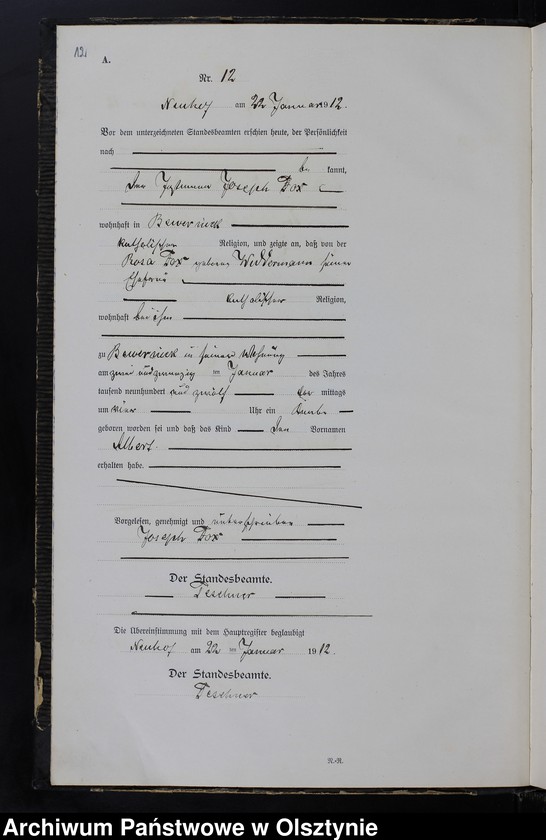 12
A.
Nr. 12
Neuhof am 22 Januar 1912.
Vor dem unterzeichneten Standesbeamten erschien heute, der Persönlichkeit
nach
be kannt,
der Joseph Fox
wohnhaft in Bewernick
katholischer Religion, und zeigte an, daß von der
Rosa Fox geborene Wedermann seiner
Ehefrau
katholischer Religion,
wohnhaft bei ihm
zu Bewernick in seiner Wohnung
am zwei und zwanzig ten Januar des Jahres
tausend neunhundert und zwölf vor mittags
um vier Uhr ein Knabe
geboren worden sei und daß das Kind den Vornamen
Albert.
erhalten habe.
Vorgelesen, genehmigt und unterschrieben
Joseph Fox
Der Standesbeamte.
Teschner
Die Übereinstimmung mit dem Hauptregister beglaubigt
Neuhof am 22 ten Januar 1912.
Der Standesbeamte.
Teschner
R.-R.
Archiwum Państwowe w Olsztynie